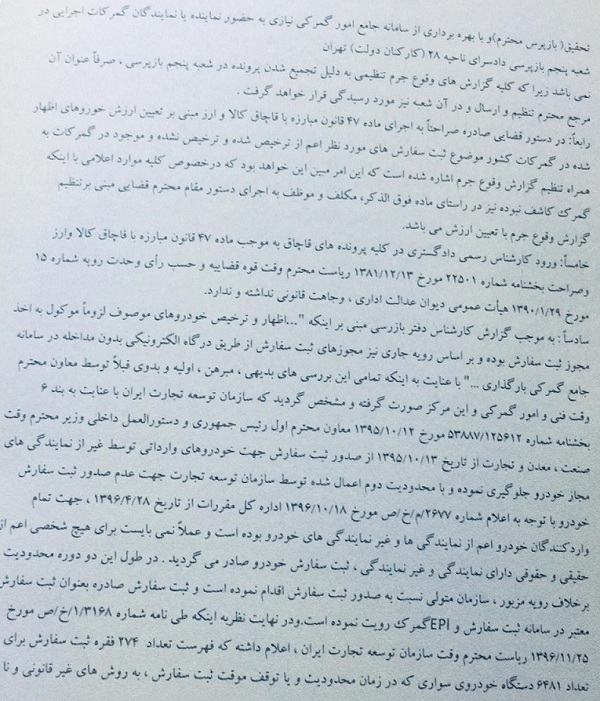 تحقیق( بازپرس محترم)و با بهره برداری از سامانه جامع امور گمرکی نیازی به حضور نماینده یا نمایندگان گمرکات اجرایی در
شعبه پنجم بازپرسی دادسرای ناحیه ۲۸ (کارکنان دولت) تهران
نمی باشد زیرا که کلیه گزارش های وقوع جرم تنظیمی به دلیل تجمیع شدن پرونده در شعبه پنجم بازپرسی ، صرفاً عنوان آن
مرجع محترم تنظیم و ارسال و در آن شعبه نیز مورد رسیدگی قرار خواهد گرفت .
رابعاً: در دستور قضایی صادره صراحتاً به اجرای ماده ۴۷ قانون مبارزه با قاچاق کالا و ارز مبنی بر تعیین ارزش خوروهای اظهار
شده در گمرکات کشور موضوع ثبت سفارش های مورد نظر اعم از ترخیص شده و ترخیص نشده و موجود در گمرکات به
همراه تنظیم گزارش وقوع جرم اشاره شده است که این امر مبین این خواهد بود که درخصوص کلیه موارد اعلامی با اینکه
گمرک کاشف نبوده نیز در راستای ماده فوق الذکر، مکلف و موظف به اجرای دستور مقام محترم قضایی مبنی برتنظیم
گزارش وقوع جرم با تعیین ارزش می باشد.
خامساً: ورود کارشناس رسمی دادگستری در کلیه پرونده های قاچاق به موجب ماده ۴۷ قانون مبارزه با قاچاق کالا وارز
وصراحت بخشنامه شماره ۲۲۵۰۱ مورخ ۱۳۸۱/۱۲/۱۳ ریاست محترم وقت قوه قضاییه و حسب رأی وحدت رویه شماره ۱۵
مورخ ۱۳۹۰/۱/۲۹ هیأت عمومی دیوان عدالت اداری ، وجاهت قانونی نداشته و ندارد.
سادساً : به موجب گزارش کارشناس دفتر بازرسی مبنی بر اینکه "...اظهار و ترخیص خودروهای موصوف لزوماً موکول به اخذ
مجوز ثبت سفارش بوده و بر اساس رویه جاری نیز مجوزهای ثبت سفارش از طریق درگاه الکترونیکی بدون مداخله در سامانه
جامع گمرکی بارگذاری ..." با عنایت به اینکه تمامی این بررسی های بدیهی ، مبرهن ، اولیه و بدوی قبلاً توسط معاون محترم
وقت فنی و امور گمرکی و این مرکز صورت گرفته و مشخص گردید که سازمان توسعه تجارت ایران با عنایت به بند ۶
بخشنامه شماره ۵۳۸۸۷/۱۲۵۶۱۲ مورخ ۱۳۹۵/۱۰/۱۲ معاون محترم اول رئیس جمهوری و دستورالعمل داخلی وزیر محترم وقت
صنعت ، معدن و تجارت از تاریخ ۱۳۹۵/۱۰/۱۳ از صدور ثبت سفارش جهت خودروهای وارداتی توسط غیر از نمایندگی های
مجاز خودرو جلوگیری نموده و با محدودیت دوم اعمال شده توسط سازمان توسعه تجارت جهت عدم صدور ثبت سفارش
خودرو با توجه به اعلام شماره ۲۶۷۷/م/خ/ص مورخ ۱۳۹۶/۱۰/۱۸ اداره کل مقررات از تاریخ ۱۳۹۶/۴/۲۸ ، جهت تمام
واردکنندگان خودرو اعم از نمایندگی ها و غیر نمایندگی های خودرو بوده است و عملاً نمی بایست برای هیچ شخصی اعم از
حقیقی و حقوقی دارای نمایندگی و غیر نمایندگی ، ثبت سفارش خودرو صادر می گردید . در طول این دو دوره محدودیت
برخلاف رویه مزبور ، سازمان متولی نسبت به صدور ثبت سفارش اقدام نموده است و ثبت سفارش صادره بعنوان ثبت سفارش
معتبر در سامانه ثبت سفارش و EPIگمرک رویت نموده است.ودر نهایت نظربه اینکه طی نامه شماره ۱/۳۱۶۸/خ/ص مورخ
۱۳۹۶/۱۱/۲۵ ریاست محترم وقت سازمان توسعه تجارت ایران ، اعلام داشته که فهرست تعداد ۲۷۴ فقره ثبت سفارش برای
تعداد ۶۴۸۱ دستگاه خودروی سواری که در زمان محدودیت و یا توقف موقت ثبت سفارش ، به روش های غیر قانونی و نا